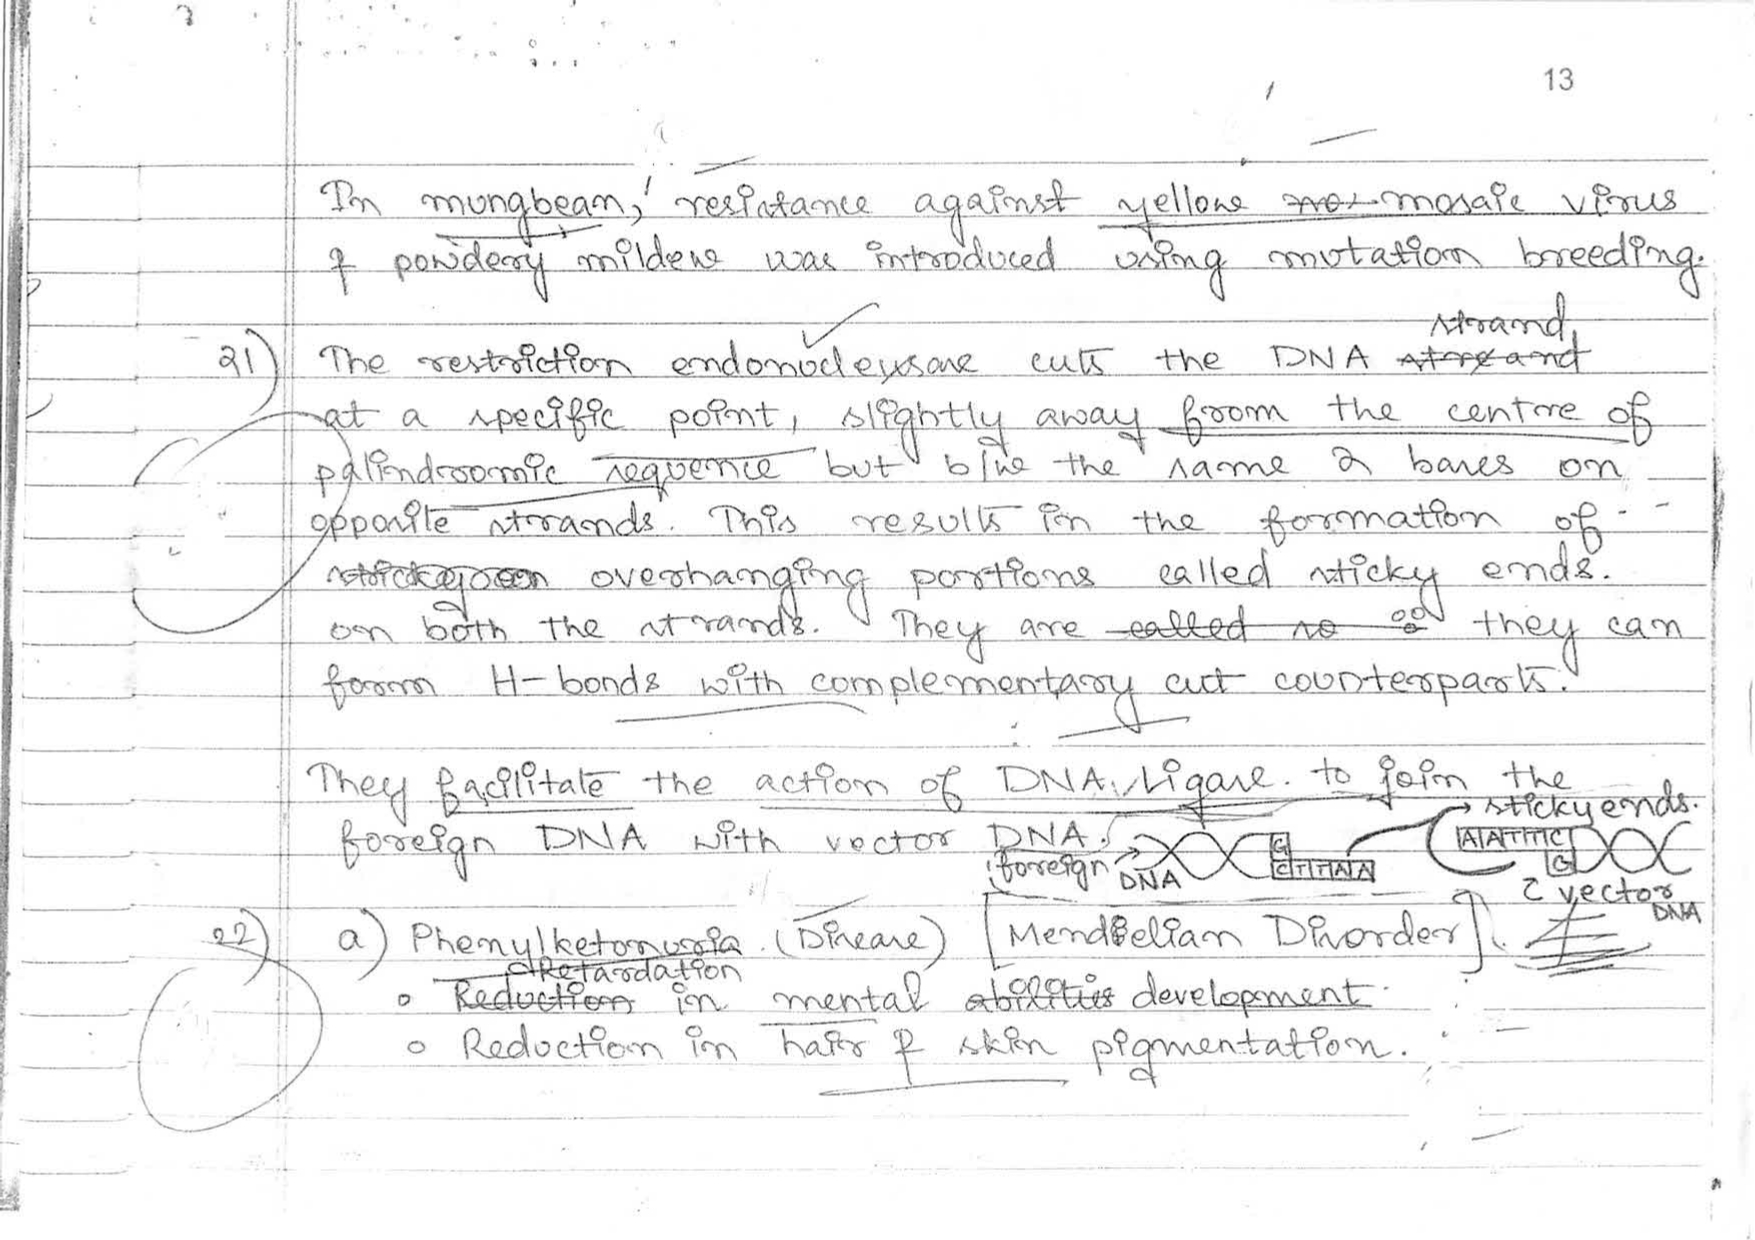 13
In mungbean, resistance against yellow mosaic virus
& powdery mildew was introduced using mutation breeding.
strand,
21) The restriction endonucleusase cuts the DNA
at a specific point, slightly away from the centre of
palindromic sequence but b/w the same 2 bases on
opposite strands. This results in the formation of
overhanging portions called sticky ends.
on both the strands. They are called so as they can
form H-bonds with complementary cut counterparts.
They facilitate the action of DNA Ligase. to join the
foreign DNA with vector DNA.
→ sticky ends.
foreign DNA
G
CTTAA
AATTC
G
vector DNA
22) a) Phenylketonuria. (Disease) [Mendelian Disorder].
Retardation
o Reduction in mental abilities development.
o Reduction in hair & skin pigmentation.